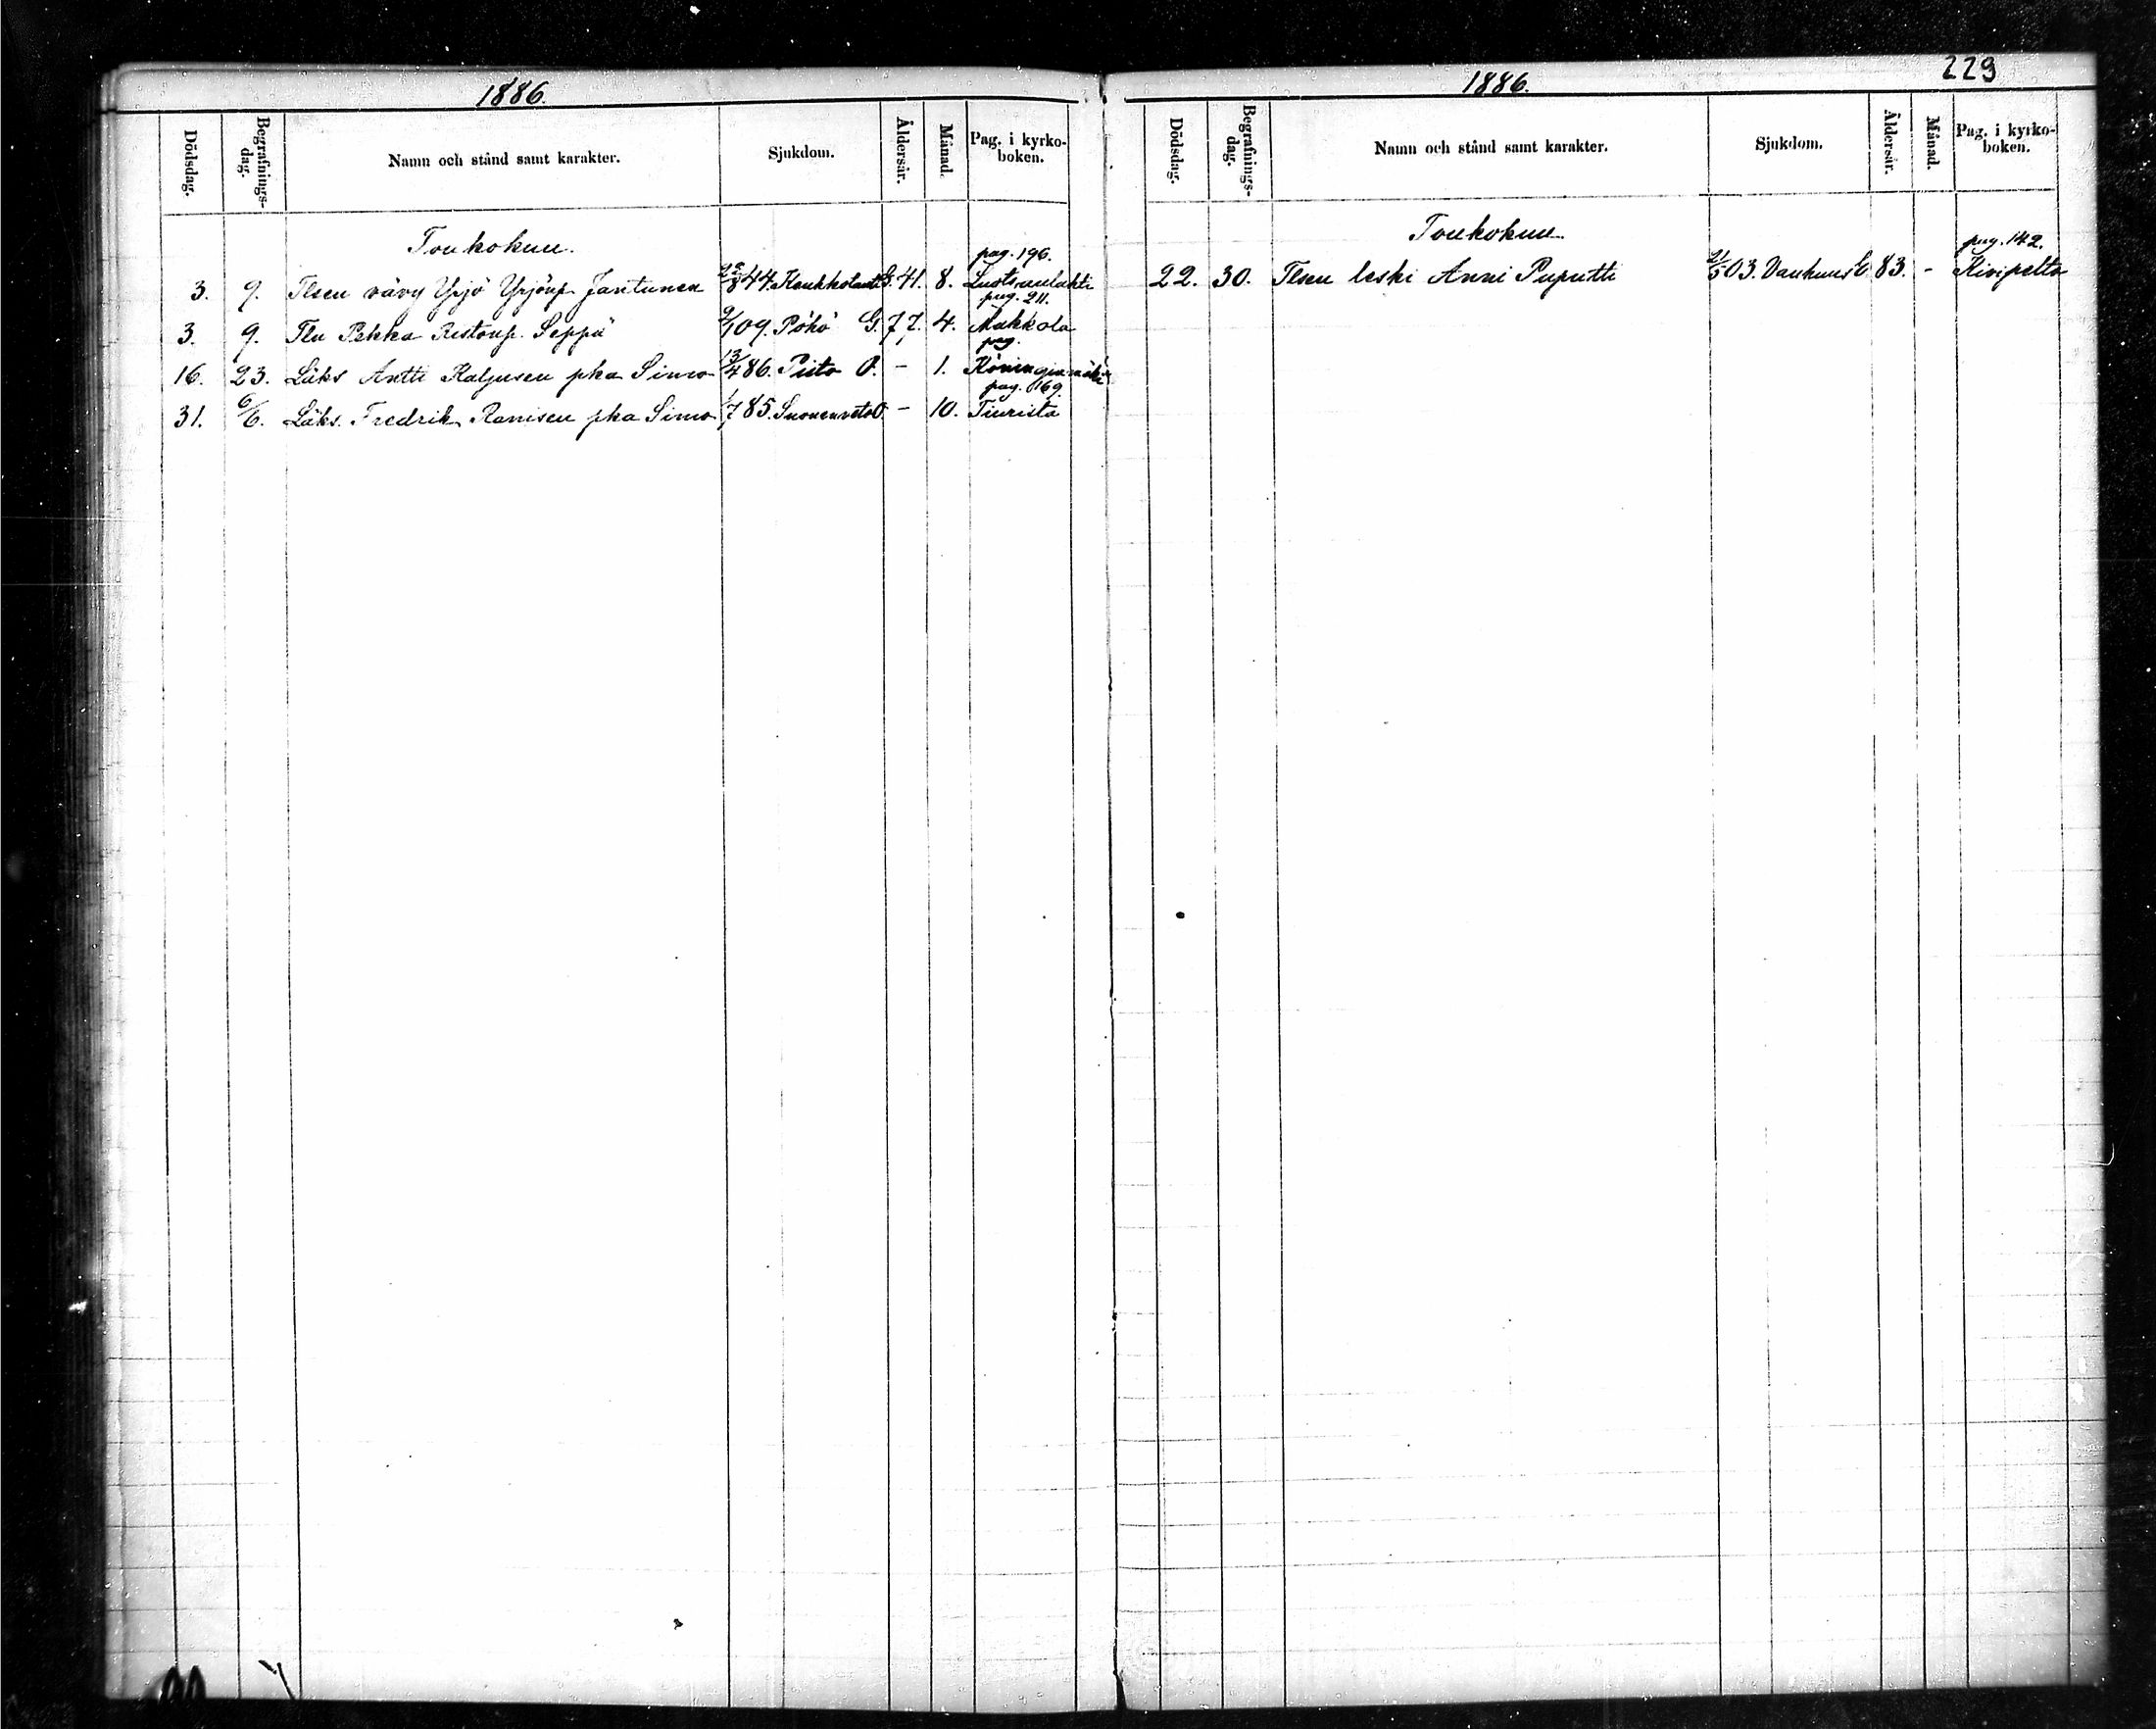 1886.
Dödsdag. Begrafnings-dag. Namn och stånd samt karakter. Sjukdom. Åldersår. Månad. Pag. i kyrko-boken.
Toukokuu.
pag. 196.
3. 9. Tlsen vävy Yrjö Yrjönp. Jantunen 22/8 44. G. 41. 8.
pag. 211.
3. 9. Tln Pekka Ristonp. Seppä 2/1 09. Pöhö G. 77. 4. Mukkola
pag.
16. 23. Läks Antti Kaljusen pka Simo 13/4 86. Pisto P. - 1.
pag. 169.
31. 6/6. Läks. Fredrik Ranisen pka Simo 1/7 85. Suonenveto P. - 10. Tiurista
229
1886.
Dödsdag. Begrafnings-dag. Namn och stånd samt karakter. Sjukdom. Åldersår. Månad. Pag. i kyrko-boken.
Toukokuu.
pag. 142.
22. 30. Tlsen leski Anni Puputti 2/5 03. Vanhuus 83. - Kivipelto